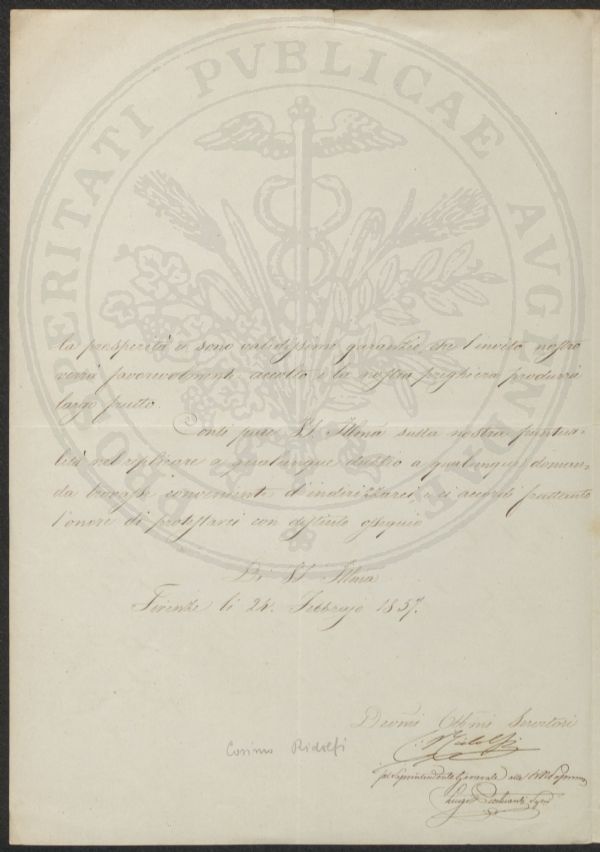 PROSPERITATI PVBLICAE AVGENDAE
la prosperità ci sono validissime garanzie che l'invito nostro
verrà favorevolmente accolto e la nostra preghiera produrrà
largo frutto.
Conti pure S. S. Illma sulla nostra puntua-
lità nel replicare a qualunque dubbio a qualunque doman-
da trovasse conveniente d'indirizzarci e ci accordi frattanto
l'onore di protestarci con distinto ossequio
Di S. S. Illma
Firenze li 24. Febbrajo 1857.
Devmi Obbmi Servitori
C. Ridolfi
Cosimo Ridolfi
pel Soprintendente Generale alle
Luigi